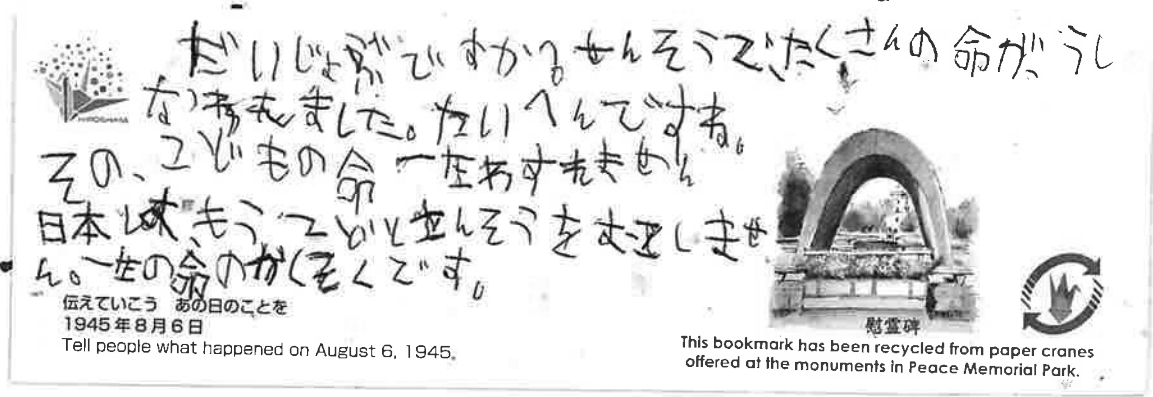 だいじょぶですか。せんそうでたくさんの命が、うし
なわれました。たいへんですね。
その、こどもの命一生わすれません
日本しは もうにどとせんそうを しませ
ん。一生の命のかくそくです。
HIROSHIMA
伝えていこう あの日のことを
1945年8月6日
Tell people what happened on August 6, 1945.
慰霊碑
This bookmark has been recycled from paper cranes
offered at the monuments in Peace Memorial Park.